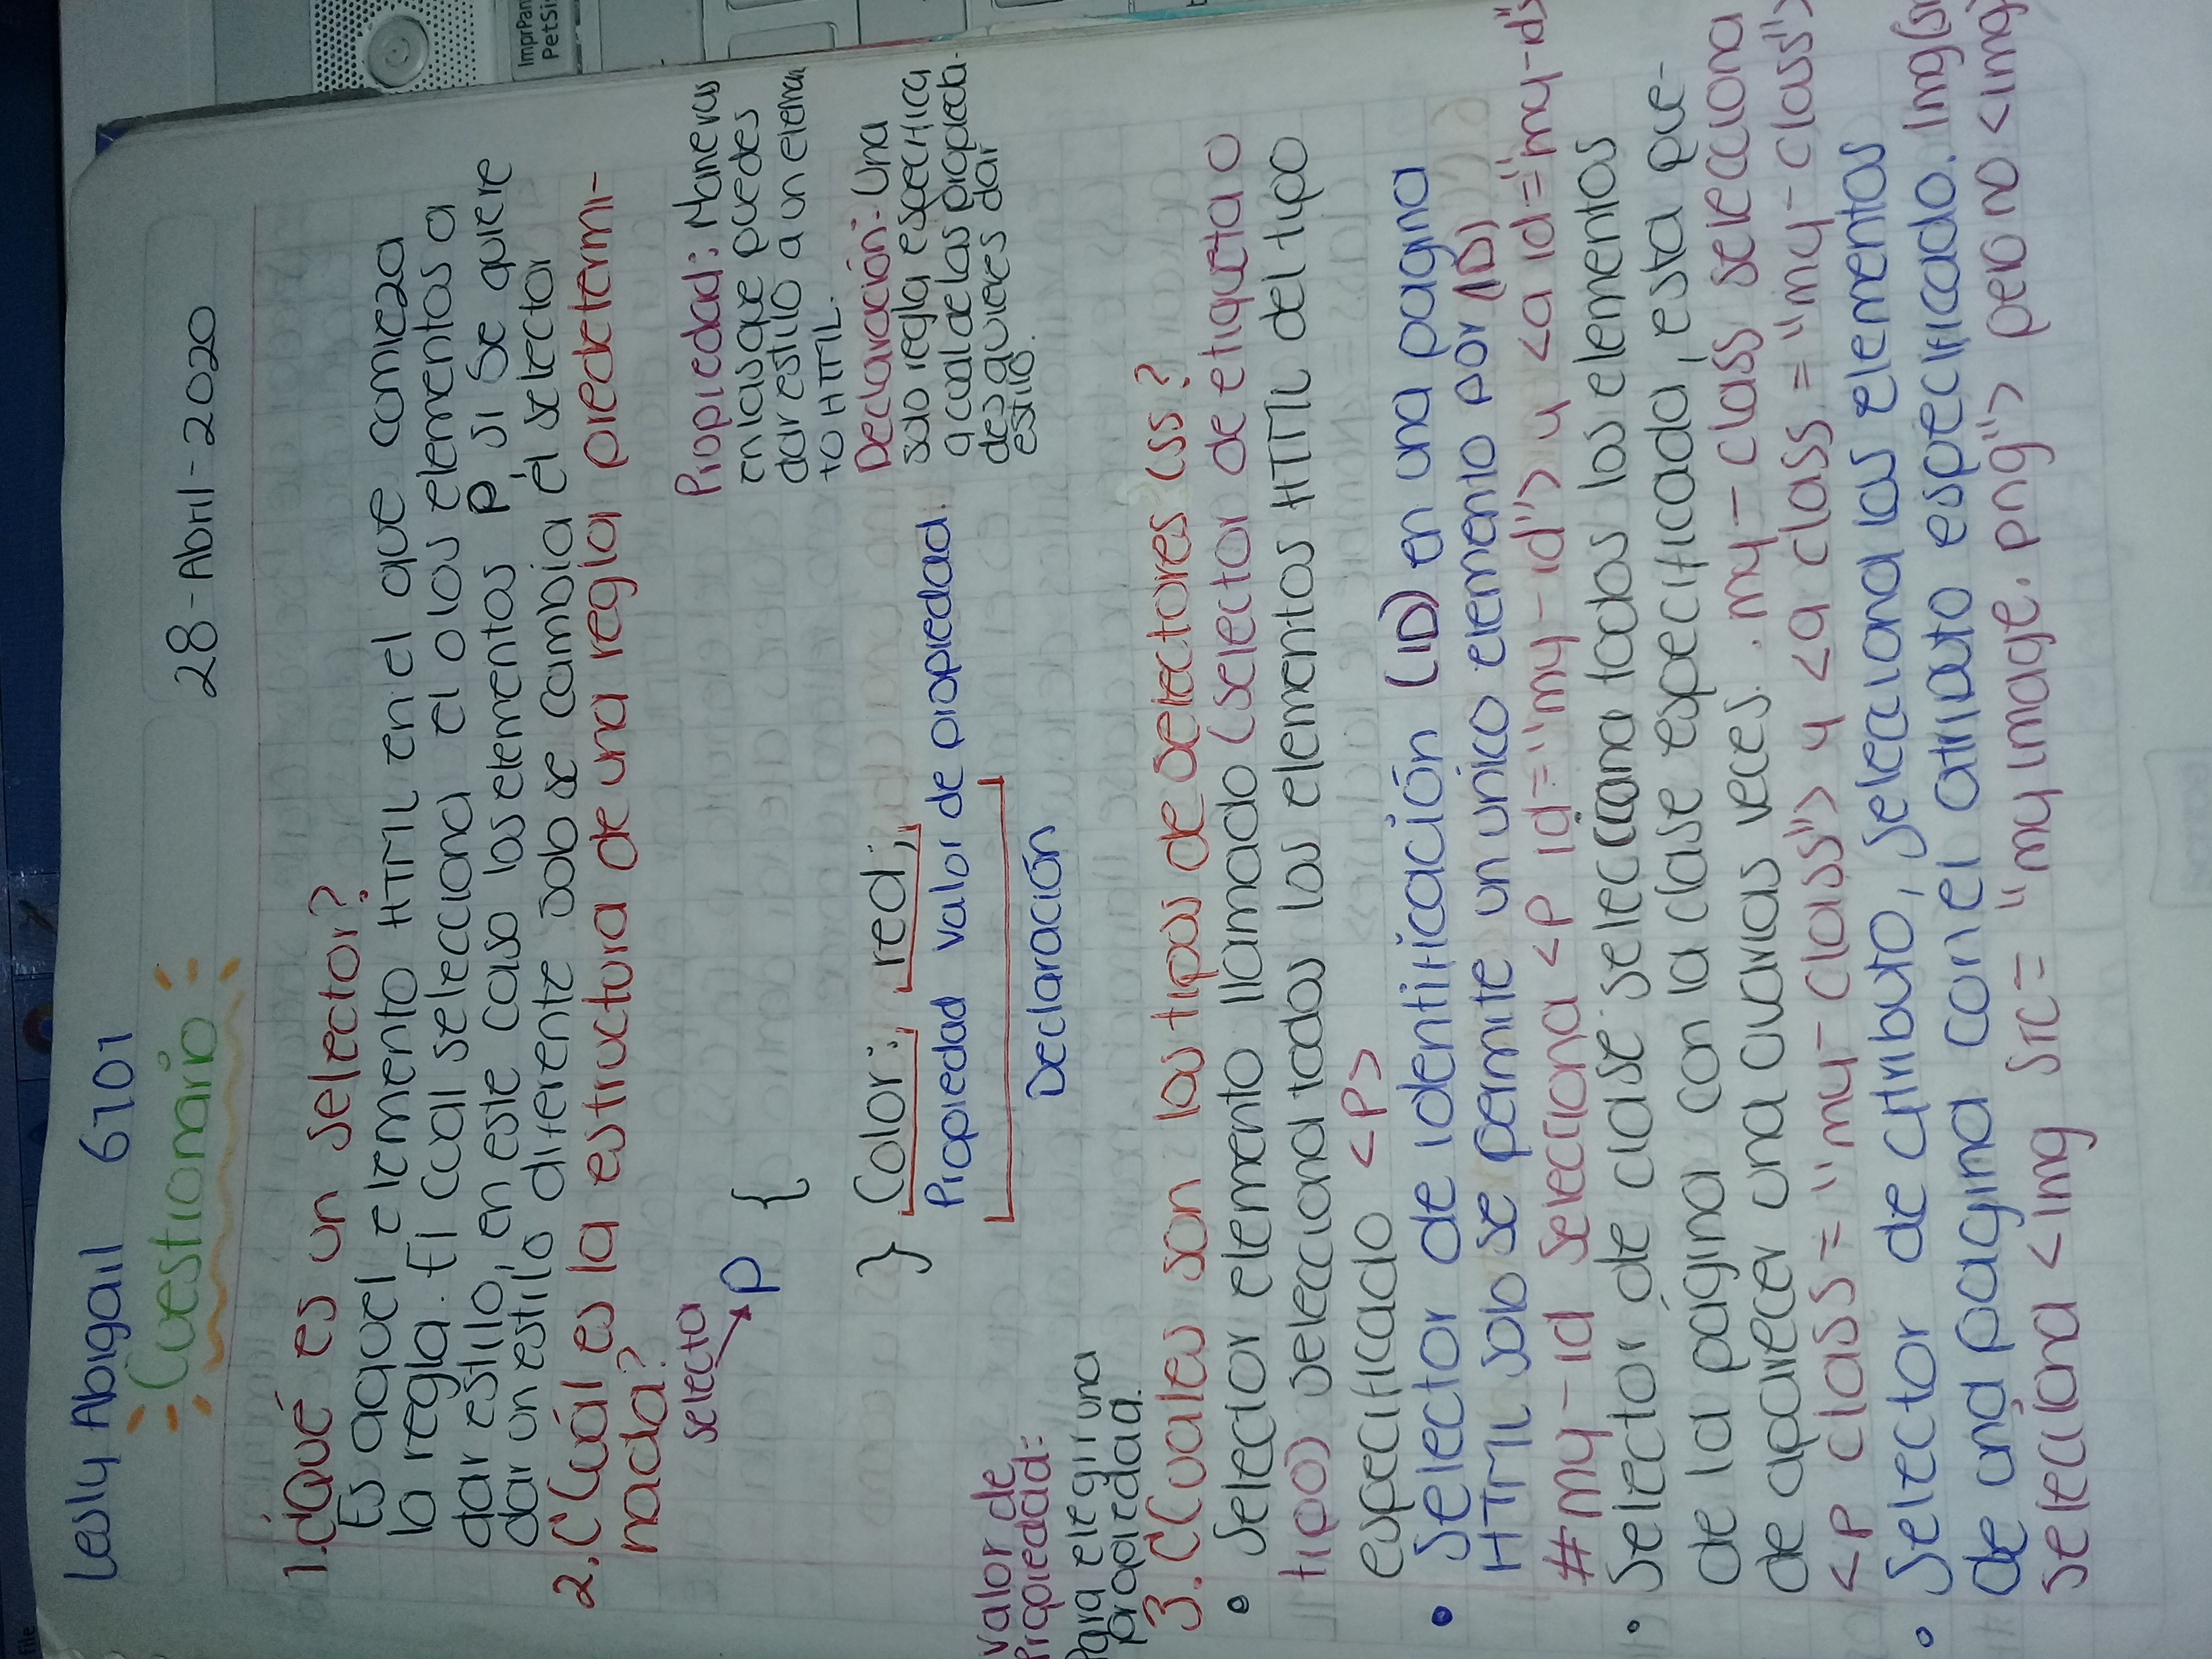 file
Lesly Abigail 6701
Cuestionario
28-Abril-2020
1.¿Qué es un selector?
Es aquel elemento HTML en el que comieza
la regla. El cual selecciona el o los elementos a
dar estilo, en este caso los elementos P, si se quiere
dar un estilo diferente solo se cambia el selector
2.¿Cuál es la estructura de una regla predetermi-
nada?
selector
P {
} Color: red;
Propiedad valor de propiedad.
Declaración
Propiedad: Maneras
en las que puedes
dar estilo a un elemen
to HTML.
Declaración: Una
solo regla especifica
a cual de las propieda-
des quieres dar
estilo.
valor de
Propiedad:
Para elegir una
propiedad.
3.¿Cuales son los tipos de selectores CSS?
• Selector elemento llamado (selector de etiqueta o
tipo) selecciona todos los elementos HTML del tipo
especificado <P>
• Selector de identificación (ID) en una pagina
HTML solo se permite un unico elemento por (ID)
#my-id selecciona <P id="my-id"> y <a id="my-id">
• Selector de clase selecciona todos los elementos
de la página con la clase especificada, esta pue-
de aparecer una o varias veces. .my-class selecciona
<p class="my-class"> y <a class="my-class">
• Selector de atributo, selecciona los elementos
de una pagina con el atributo especificado. Img(sr
selecciona <img src="myimage.png"> pero no <img>
ImprPan
PetSi